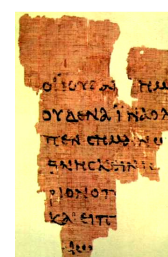 ΟΙ ΙΟΥΔΑΙ ΗΜ
ΟΥΔΕΝΑ ΙΝΑ Ο Λ
ΠΕΝ CΗΜΑΙΝΩ
ΘΝΗCΚΕΙΝ
ΡΙΟΝ ΟΠ
ΚΑΙ ΕΙΠ